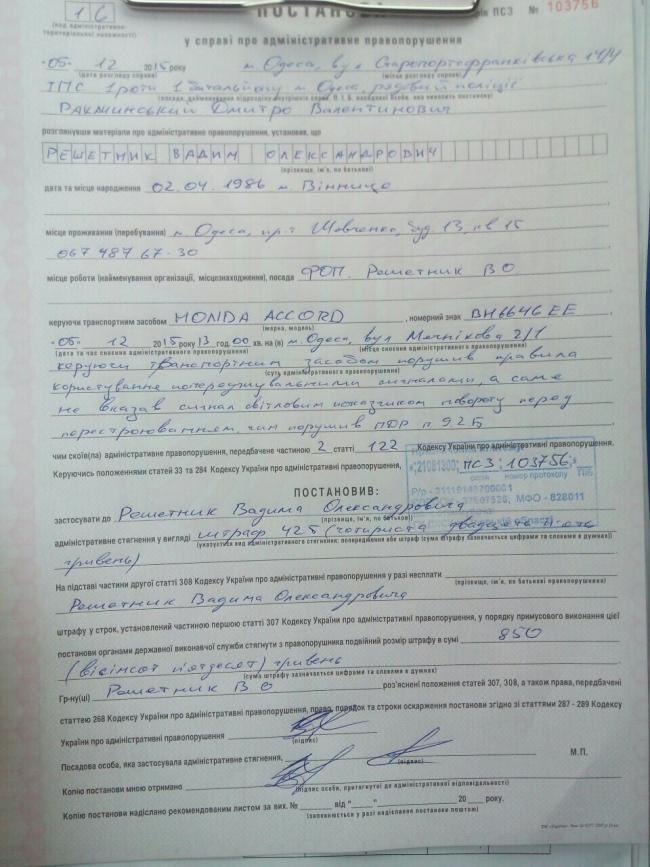 16
ПОСТАНОВА
ПС3 № 103756
(код адміністративно-
територіальної належності)
у справі про адміністративне правопорушення
"05" 12 2015 року м. Одеса, вул Старопортофранківська 14/4
(дата розгляду справи) (місце розгляду справи)
1 роти 1 батальйону м. Одеса, рядовий поліції
Дмитро Валентинович
розглянувши матеріали про адміністративне правопорушення, установив, що
РЕШЕТНИК ВАДИМ ОЛЕКСАНДРОВИЧ
(прізвище, ім'я, по батькові)
дата та місце народження 02.04.1986 м. Вінниця
місце проживання (перебування) м. Одеса, пр-т Шевченко, буд 13, кв 15
067 487 67-30
місце роботи (найменування організації, місцезнаходження), посада ФОП. Решетник В О
керуючи транспортним засобом HONDA ACCORD, номерний знак ВН6646ЕЕ
(марка, модель)
"05" 12 2015 року 13 год. 00 хв. на (в) м Одеса, вул Мечнікова 2/1
(дата та час скоєння адміністративного правопорушення) (місце скоєння адміністративного правопорушення)
керуючи транспортним засобом порушив правила
(суть адміністративного правопорушення)
користування попереджувальними сигналами, а саме
не вказав сигнал світловим показчиком повороту перед
перестроюванням чим порушив ПДР п 9.2 Б
чим скоїв(ла) адміністративне правопорушення, передбачене частиною 2 статті 122 Кодексу України про адміністративні правопорушення.
Керуючись положеннями статей 33 та 284 Кодексу України про адміністративні правопорушення,
*21081300; ПС3; 103756;
номер протоколу
МФО - 828011
ПОСТАНОВИВ:
застосувати до Решетник Вадима Олександровича
(прізвище, ім'я, по батькові)
адміністративне стягнення у вигляді штраф 425 (чотириста двадцять п'ять
(указується вид адміністративного стягнення: попередження або штраф (сума штрафу зазначається цифрами та словами в дужках))
гривень)
На підставі частини другої статті 308 Кодексу України про адміністративні правопорушення у разі несплати
(прізвище, ім'я, по батькові правопорушника)
Решетник Вадима Олександровича
штрафу у строк, установлений частиною першою статті 307 Кодексу України про адміністративні правопорушення, у порядку примусового виконання цієї
постанови органами державної виконавчої служби стягнути з правопорушника подвійний розмір штрафу в сумі 850
(вісімсот п'ятдесят) гривень
(сума штрафу зазначається цифрами та словами в дужках)
Гр-ну(ці) Решетник В О роз'яснені положення статей 307, 308, а також права, передбачені
статтею 268 Кодексу України про адміністративні правопорушення, право, порядок та строки оскарження постанови згідно зі статтями 287 - 289 Кодексу
України про адміністративні правопорушення
(підпис)
Посадова особа, яка застосувала адміністративне стягнення, М.П.
(підпис)
Копію постанови мною отримано
(підпис особи, притягнутої до адміністративної відповідальності)
Копію постанови надіслано рекомендованим листом за вих. № від " " 20 року.
(заповнюється у разі надіслання постанови поштою)